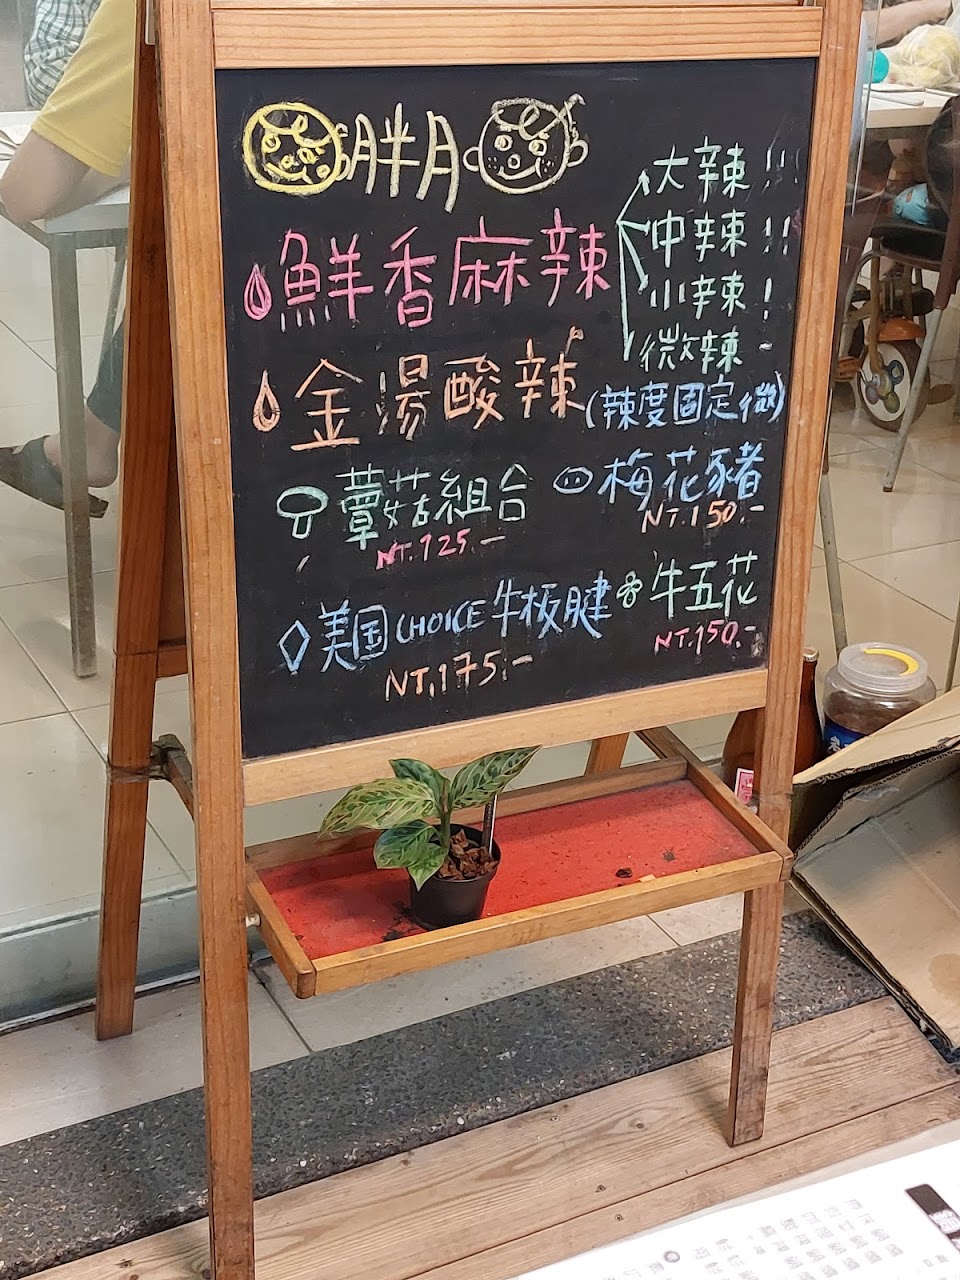 胖月
鮮香麻辣
大辣!!!
中辣!!
小辣!
微辣~
金湯酸辣(辣度固定微)
蕈菇組合
NT.125.-
梅花豬
NT.150.-
美国CHOICE牛板腱
NT.175.-
牛五花
NT.150.-